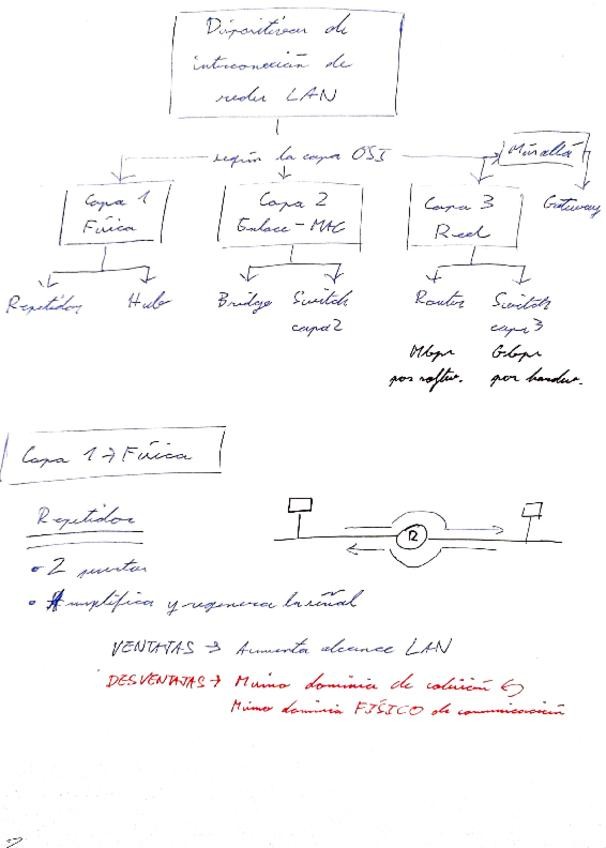 Dispositivos de
interconexión de
redes LAN
según la capa OSI
Más allá
Capa 1
Física
Capa 2
Enlace - MAC
Capa 3
Red
Gateway
Repetidor
Hub
Bridge
Switch
capa 2
Router
Switch
capa 3
Mbps
por softw.
Gbps
por hardw.
Capa 1 → Física
Repetidor
R
• 2 puertos
• Amplifica y regenera la señal
VENTAJAS → Aumenta alcance LAN
DESVENTAJAS → Mismo dominio de colisión
Mismo dominio FÍSICO de comunicación